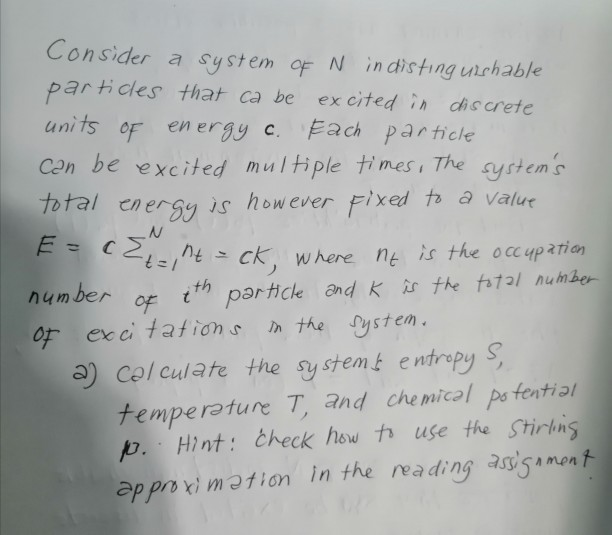 Consider a system of N indistinguishable
particles that ca be excited in discrete
units of energy c. Each particle
can be excited multiple times. The system's
total energy is however fixed to a value
E = c Σ_{t=1}^{N} n_t = cK, where n_t is the occupation
number of ith particle and K is the total number
of excitations in the system.
a) Calculate the systems entropy S,
temperature T, and chemical potential
p. Hint: check how to use the Stirling
approximation in the reading assignment